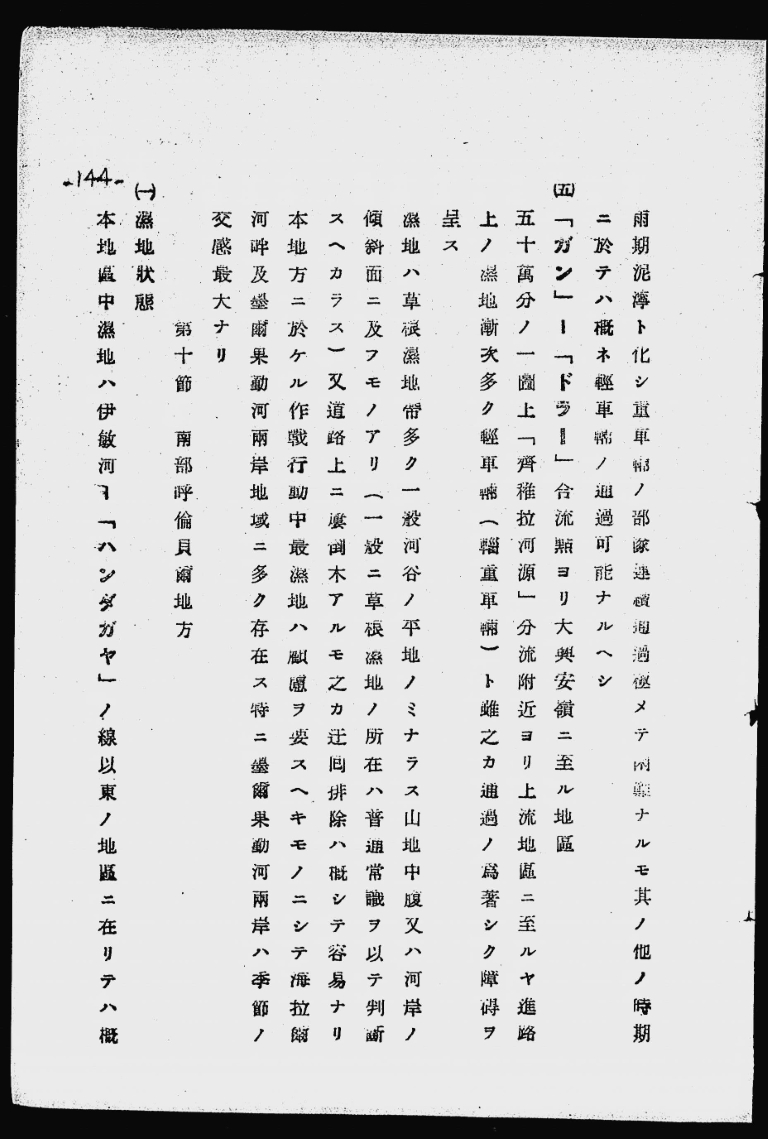 雨期泥濘ト化シ重車輛ノ部隊連續通過極メテ困難ナルモ其ノ他ノ時期
ニ於テハ概ネ輕車輛ノ通過可能ナルヘシ
㈤「ガン」ー「ドラー」合流點ヨリ大興安嶺ニ至ル地區
五十萬分ノ一圖上「齊稚拉河源」分流附近ヨリ上流地區ニ至ルヤ進路
上ノ濕地漸次多ク輕車輛(輜重車輛)ト雖之カ通過ノ爲著シク障碍ヲ
呈ス
濕地ハ草根濕地帶多ク一般河谷ノ平地ノミナラス山地中腹又ハ河岸ノ
傾斜面ニ及フモノアリ(一般ニ草根濕地ノ所在ハ普通常識ヲ以テ判斷
スヘカラス)又道路上ニ屢倒木アルモ之カ迂囘排除ハ概シテ容易ナリ
本地方ニ於ケル作戰行動中最濕地ハ顧慮ヲ要スヘキモノニシテ海拉爾
河畔及墨爾果勤河兩岸地域ニ多ク存在ス特ニ墨爾果勤河兩岸ハ季節ノ
交感最大ナリ
第十節 南部呼倫貝爾地方
㈠濕地狀態
本地區中濕地ハ伊敏河ー「ハンダガヤ」ノ線以東ノ地區ニ在リテハ概
-144-